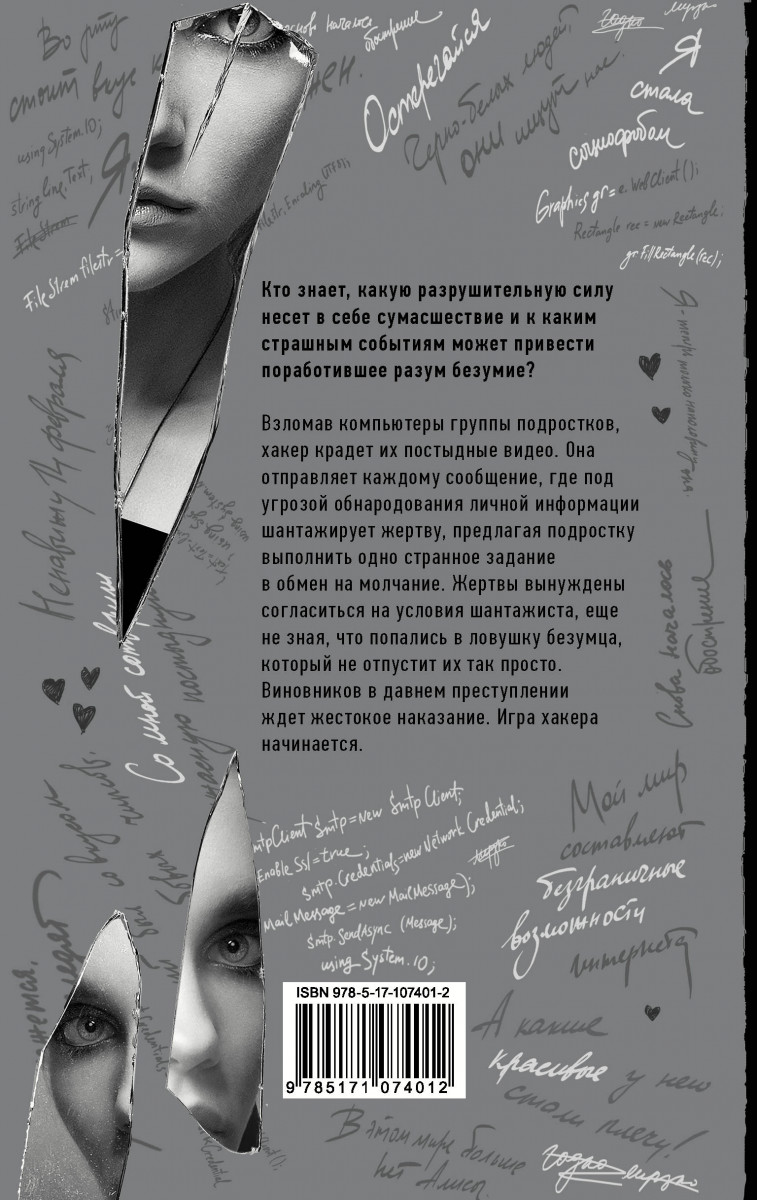 Во рту
стоит вкус
using System.IO;
string line, Text,
Я
File Stream
File Strem filestr=
снова началось
обострение
Остерегайся
Черно-белых людей,
они ищут нас.
Я
стала
социофобом
Graphics gr=e.WebClient();
Rectangle rec = new Rectangle;
gr.FillRectangle(rec);
Кто знает, какую разрушительную силу
несет в себе сумасшествие и к каким
страшным событиям может привести
поработившее разум безумие?
Взломав компьютеры группы подростков,
хакер крадет их постыдные видео. Она
отправляет каждому сообщение, где под
угрозой обнародования личной информации
шантажирует жертву, предлагая подростку
выполнить одно странное задание
в обмен на молчание. Жертвы вынуждены
согласиться на условия шантажиста, еще
не зная, что попались в ловушку безумца,
который не отпустит их так просто.
Виновников в давнем преступлении
ждет жестокое наказание. Игра хакера
начинается.
Ненавижу 14 февраля
Со мной
Снова началось
обострение
mtpClient Smtp=new Smtp Client;
Enable Ssl=true;
Smtp.Credentials=new Network Credential;
Mail Message = new Mail(Message);
Smtp.SendAsync (Message);
using System.IO;
Мой мир
составляют
безграничные
возможности
интернета
ISBN 978-5-17-107401-2
9 785171 074012
А какие
красивые у нее
стали плечи!
В этом мире больше
нет Алисы